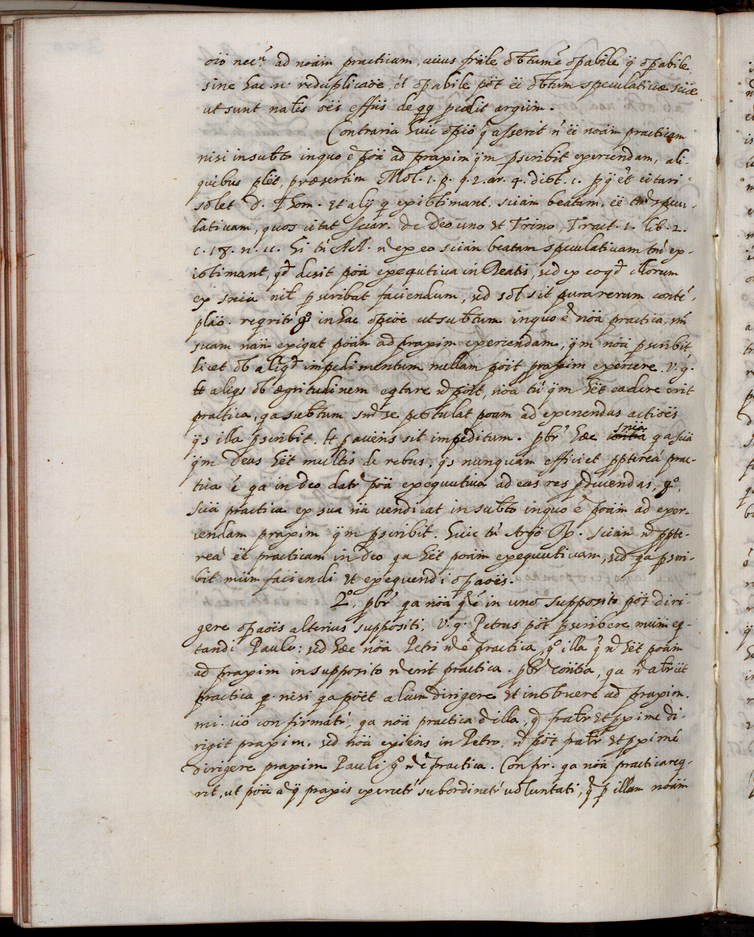 oĩo necrĩ ad noãm practicam, cuius prãle obtumẽ opabile q̃ opabile,
sine hac n. reduplicaõe, ẽt opabile põt eẽ obtum speculatiuæ sciæ
ut sunt natles oẽs effũs de qq̃ pcedit argum.
Contraria huic opĩo q̃ asserit ñ eẽ noãm practicam
nisi in subto in quo ẽ põa ad praxim q̃m pscribit exercendam, ali-
quibus plẽt, præsertim Mol. 1. p. q. 2. ar. 4. disp. 1. p q̃ ẽt citari
solet D. Thom. et alij q̃ existimant, sciãm beatam, eẽ tm̃ specu-
latiuam, quos citat Suar. de Deo uno et Trino, Tract. 1. lib. 2.
c. 18. n. 11. hi tñ Act. ñ ex eo sciãm beatam speculatiuam tm̃ ex-
istimant, qd̃ desit põa exequtiua in Beatis, sed ex eo qd̃ illorum
ex sciã nil pscribat faciendum, sed sol sit pura rerum conte-
plãõ. reqrit g̊ in hac opĩõe ut subtum in quo ẽ noã practica, iũ
suam nãm exigat põam ad praxim exercendam, q̃m noã pscribit
licet ob aliqd̃ impedimentum nullam posit praxim exercere. V. g.
et aliqs ob ægritudinem cãtare ñ põt, noã tñ q̃m hẽt cadere erit
practica, qa subtum sm̃ se postulat põam ad exercendas actiões
q̃s illa pscribit, et p accĩens sit impeditum. pbr̃ hæc sñia qa sciã
q̃m Deus hẽt multis de rebus, q̃s nunquam efficiet pptereà prac-
tica ẽ qa in deo datr̃ põa exequutiua ad eas res pducendas, g̊.
sciã practica ex sua nã vendicat in subto in quo ẽ põam ad exer-
cendam praxim q̃m pscribit. Huic tñ Argõ R. sciãm ñ ppte-
rea eẽ practicam in deo qa hẽt põam exequutiuam, sed qa pscri-
bit mũm faciendi et exequendi opãões.
2º. pbr̃ qa noã q̃ ẽ in uno supposito põt diri-
gere opãões alterius suppositi, V. g. Petrus põt pscribere mum cã-
tandi Paulo: sed hæc noã Petro ñ ẽ practica, g̊ illa q̃ ñ hẽt põam
ad praxim in supposito ñ erit practica. pbr̃ contĩa, qa ñ
practica q̃ nisi qa põt alium dirigere et instruere ad praxim.
mi. uõ confirmatr̃, qa noã practica ẽ illa, q̃ prãlr̃ et pximẽ di-
rigit praxim, sed noã exĩens in Petro, ñ põt prãlr̃ et pximẽ
dirigere praxim Pauli g̊ ñ ẽ practica. Confir. qa noã practica req-
rit, ut põa a q̃ praxis exercetr̃ subordinetr̃ uoluntati, q̃ p illam noãm